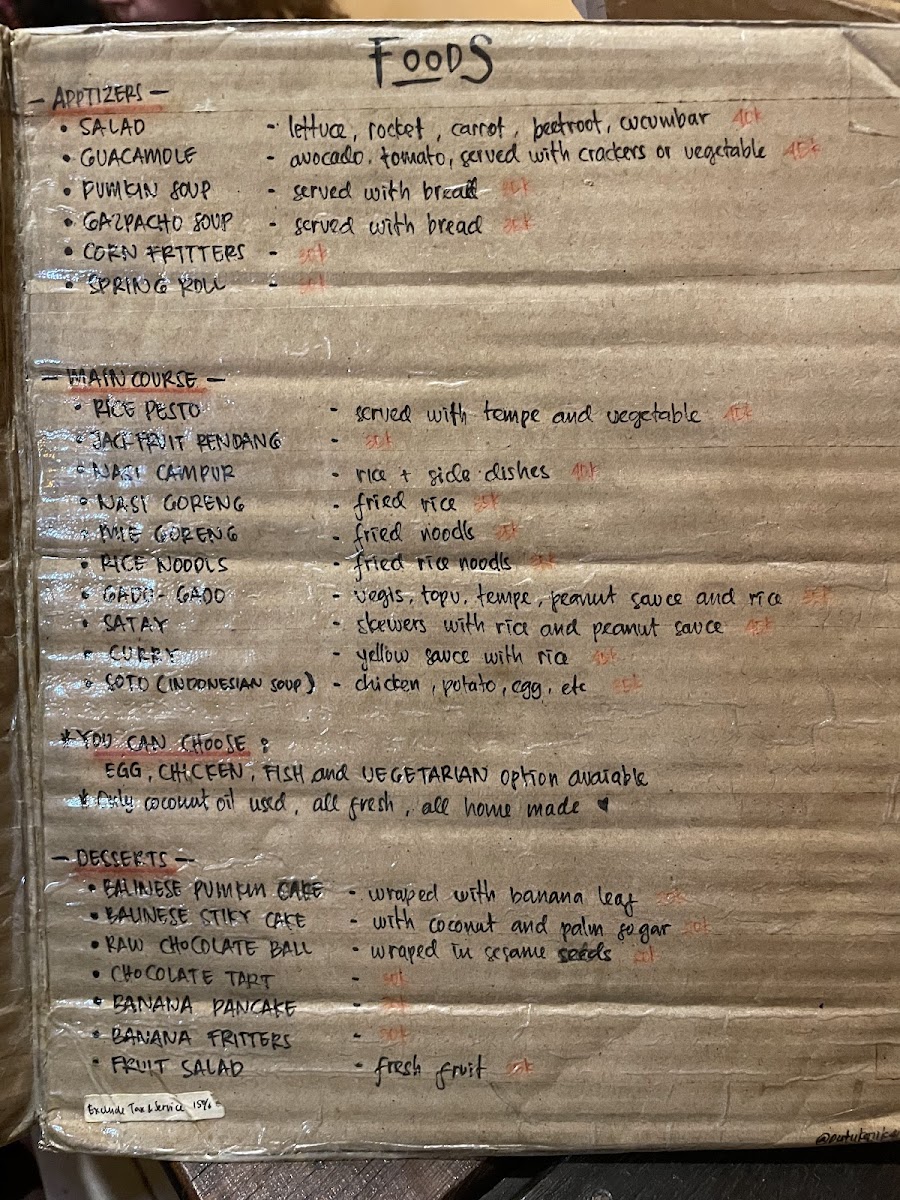 FOODS
- APPTIZERS -
• SALAD - lettuce, rocket, carrot, beetroot, cucumbar 40k
• GUACAMOLE - avocado, tomato, served with crackers or vegetable 45k
• PUMKIN SOUP - served with bread
• GAZPACHO SOUP - served with bread
• CORN FRITTERS - 30k
• SPRING ROLL - 30k
- MAIN COURSE -
• RICE PESTO - served with tempe and vegetable 45k
• JACKFRUIT RENDANG -
• NASI CAMPUR - rice + side dishes 40k
• NASI GORENG - fried rice 35k
• MIE GORENG - fried noodls
• RICE NOODLS - fried rice noodls
• GADO-GADO - vegis, topu, tempe, peanut sauce and rice
• SATAY - skewers with rice and peanut sauce 45k
• CURRY - yellow sauce with rice
• SOTO (INDONESIAN SOUP) - chicken, potato, egg, etc
*YOU CAN CHOOSE :
EGG, CHICKEN, FISH and VEGETARIAN option avaiable
*Only coconut oil used, all fresh, all home made ♥
- DESSERTS -
• BALINESE PUMKIN CAKE - wraped with banana leaf
• BALINESE STIKY CAKE - with coconut and palm sogar
• RAW CHOCOLATE BALL - wraped in sesame seeds
• CHOCOLATE TART -
• BANANA PANCAKE -
• BANANA FRITTERS -
• FRUIT SALAD - fresh fruit
Exclude Tax & Service 15%